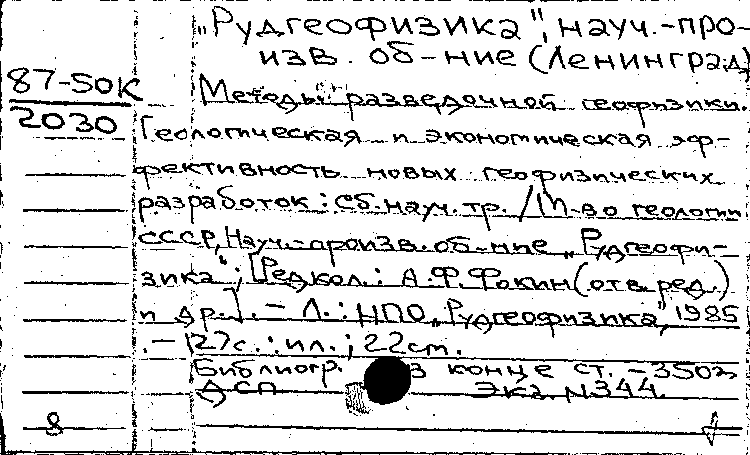 „Рудгеофизика", науч.-про-
изв. об-ние (Ленинград)
87-50К
2030
Методы разведочной геофизики.
Геологическая и экономическая эф-
фективность новых геофизических
разработок: сб. науч. тр. / М-во геологии
СССР, Науч.-произв. об-ние „Рудгеофи-
зика"; [Редкол.: А.Ф. Фокин (отв. ред.)
и др.]. - Л.: НПО „Рудгеофизика", 1985
. - 127с.: ил.; 22см.
Библиогр. в конце ст. - 350э
ДСП Экз. N344.
8